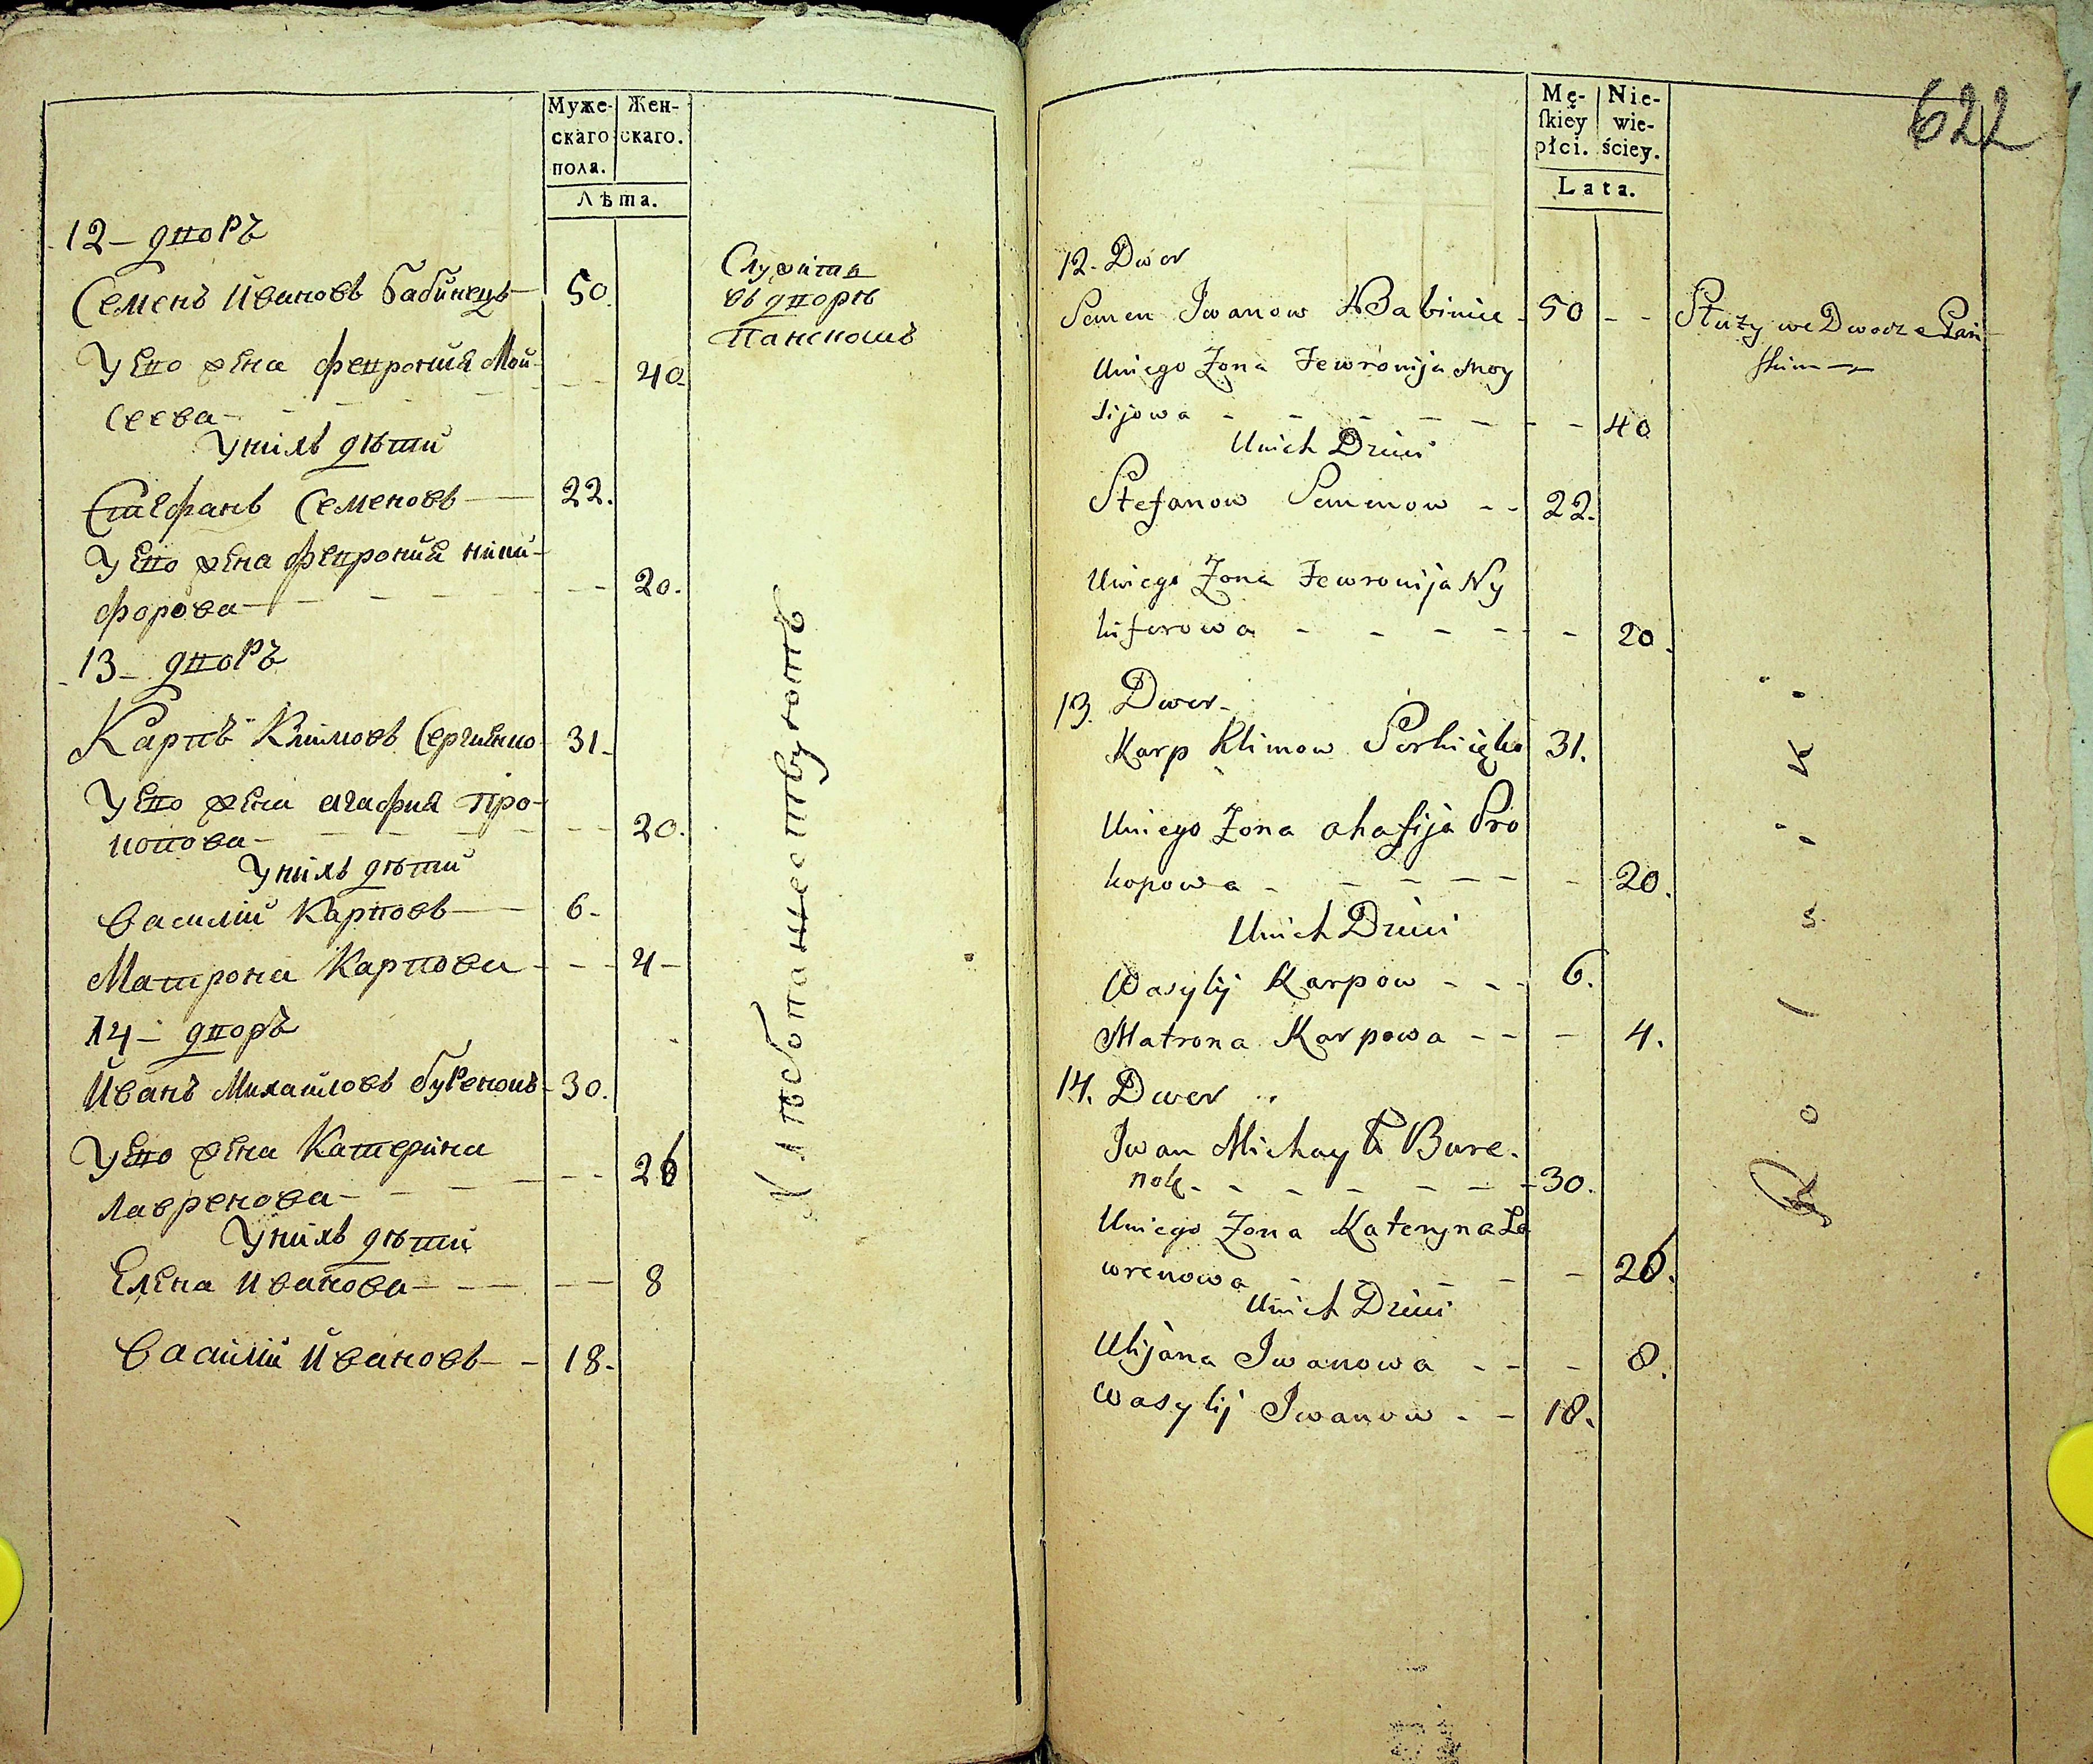 Муже-
скаго
пола.
Жен-
скаго.
Лѣта.
12 – дворъ
Семенъ Ивановъ Бабинецъ – 50.
Служитъ
въ дворѣ
Панскомъ
У Его жена Феврония Мой-
сеева – – – – – 40.
У нихъ дѣти
Стефанъ Семеновъ – 22.
У Его жена Феврония Ники-
форова – – – – – 20.
13 – дворъ
Карпъ Климовъ Сергиенко 31.
У Его жена Агафия Про-
копова – – – – – 20.
У нихъ дѣти
Василий Карповъ – 6.
Матрона Карпова – – – 4 –
14 – дворъ
Иванъ Михайловъ Буренокъ – 30.
У Его жена Катерина
Лавренова – – – – – 26
У нихъ дѣти
Елена Иванова – – – – 8
Василий Ивановъ – – 18.
Хлѣбопашествуютъ
622
Mę-
ſkiey
płci.
Nie-
wie-
ściey.
Lata.
12. Dwor
Semen Iwanow Babiniec – 50 – –
Służy we Dworze Pań
skim
Uniego Żona Fewronija Moy
sijowa – – – – – – – 40
Unich Dzieci
Stefanow Semenow – – 22.
Uniego Żona Fewronija Ny
kiforowa – – – – – 20.
13. Dwor –
Karp Klimow Serhiięko 31.
Uniego Żona ahafija Pro
kopowa – – – – – – 20.
Unich Dzieci
Wasylij Karpow – – – 6.
Matrona Karpowa – – – 4.
14. Dwor
Iwan Michaył Bure.
nok – – – – – – – 30.
Uniego Żona Kateryna La
wrenowa – – – – 26.
Unich Dzieci
Ulijana Iwanowa – – – 8.
Wasylij Iwanow – – 18.
R o l s i k i